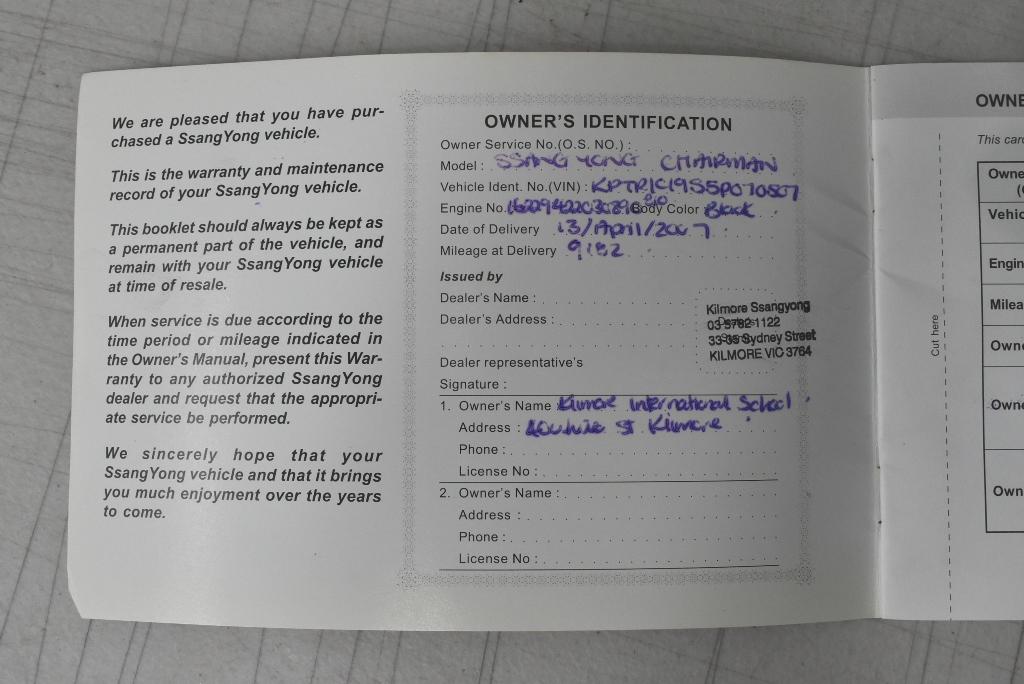 We are pleased that you have pur-
chased a SsangYong vehicle.
This is the warranty and maintenance
record of your SsangYong vehicle.
This booklet should always be kept as
a permanent part of the vehicle, and
remain with your SsangYong vehicle
at time of resale.
When service is due according to the
time period or mileage indicated in
the Owner's Manual, present this War-
ranty to any authorized SsangYong
dealer and request that the appropri-
ate service be performed.
We sincerely hope that your
SsangYong vehicle and that it brings
you much enjoyment over the years
to come.
OWNER'S IDENTIFICATION
Owner Service No.(O.S. NO.) :
Model : SSANG YONG CHAIRMAN
Vehicle Ident. No.(VIN) :
Engine No. Body Color : Black
Date of Delivery 13/April/2007
Mileage at Delivery 9182
Issued by
Dealer's Name :
Dealer's Address :
Kilmore Ssangyong
03 5782 1122
33-35 Sydney Street
KILMORE VIC 3764
Dealer representative's
Signature :
1. Owner's Name Kilmore International School
Address : St Kilmore
Phone :
License No :
2. Owner's Name :
Address :
Phone :
License No :
Cut here
OWNE
This car
Owne
Vehic
Engin
Milea
Owne
Owne
Own